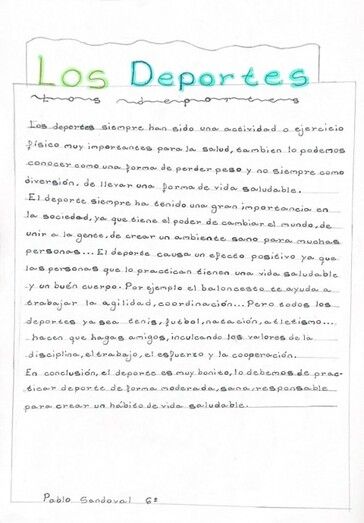 Los Deportes
Los deportes
Los deportes siempre han sido una actividad o ejercicio
físico muy importantes para la salud, tambien lo podemos
conocer como una forma de perder peso y no siempre como
diversión, de llevar una forma de vida saludable.
El deporte siempre ha tenido una gran importancia en
la sociedad, ya que tiene el poder de cambiar el mundo, de
unir a la gente, de crear un ambiente sano para muchas
personas... El deporte causa un efecto positivo ya que
las personas que lo practican tienen una vida saludable
y un buen cuerpo. Por ejemplo el baloncesto te ayuda a
trabajar la agilidad, coordinación... Pero todos los
deportes ya sea tenis, futbol, natación, atletismo...
hacen que hagas amigos, inculcando los valores de la
disciplina, el trabajo, el esfuerto y la cooperación.
En conclusión, el deporte es muy bonito, lo debemos de prac-
ticar deporte de forma moderada, sana, responsable
para crear un hábito de vida saludable.
Pablo Sandoval 6º